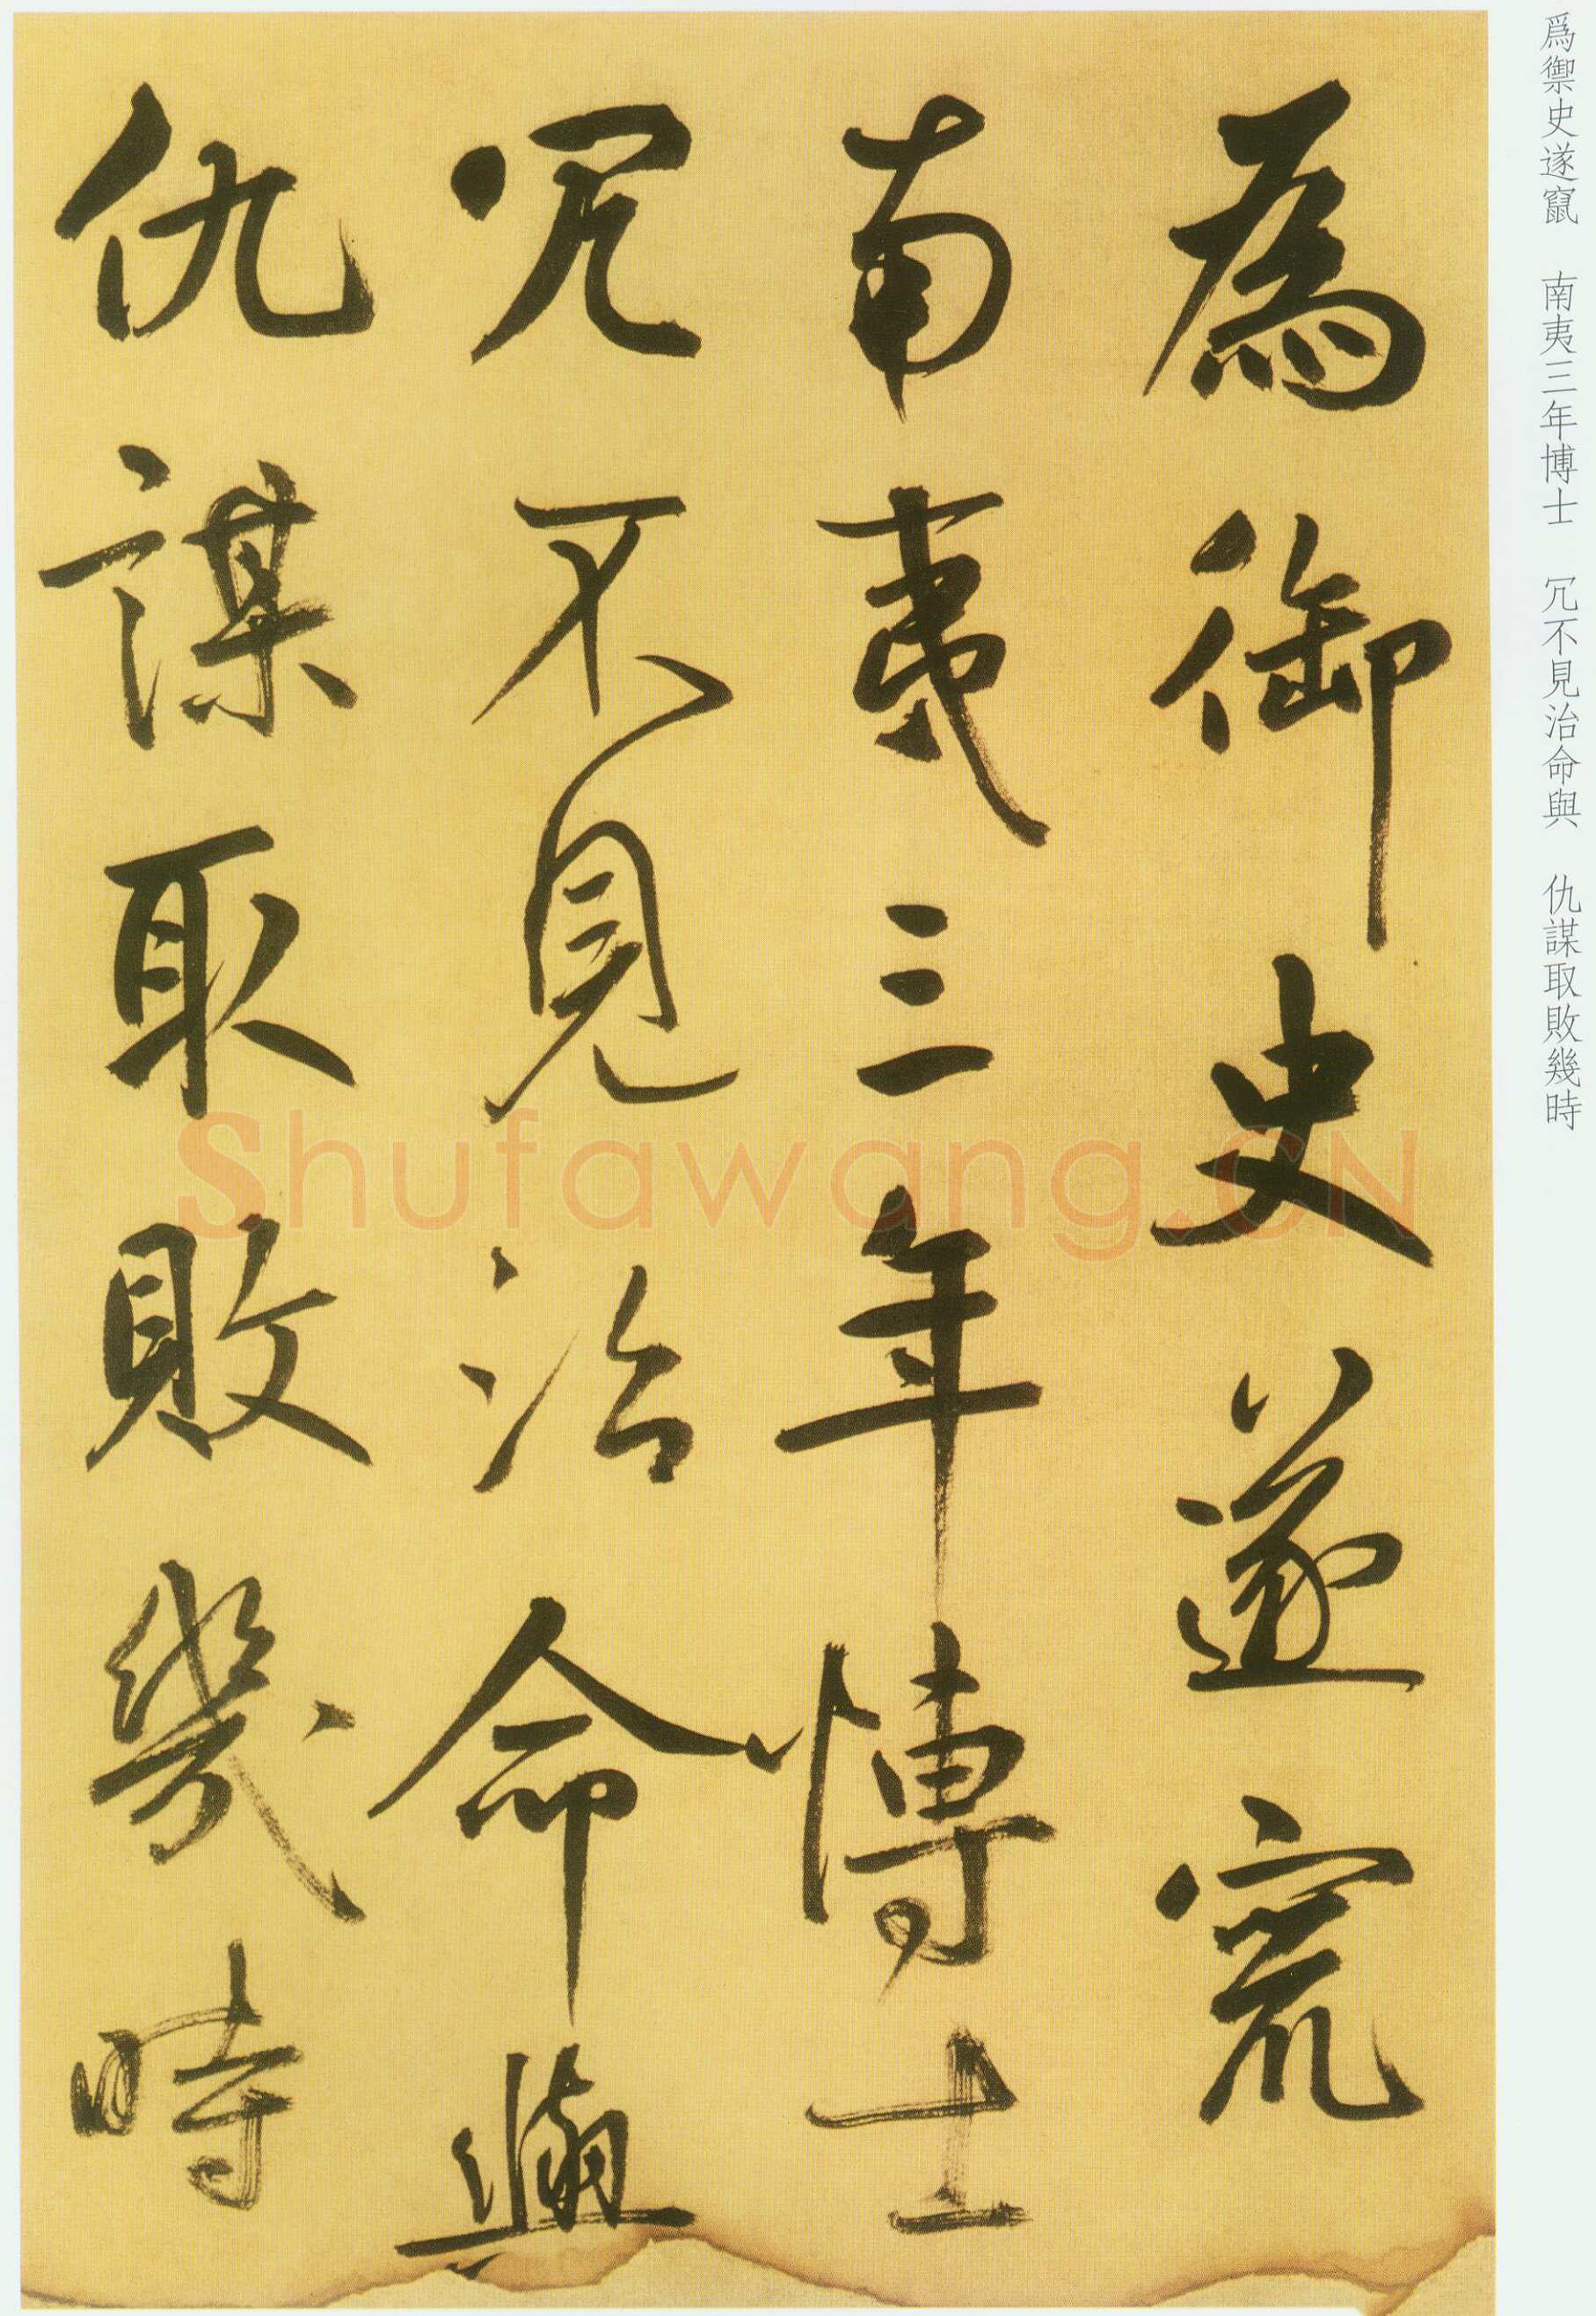 爲禦史遂竄 南夷三年博士 冗不見治命與 仇謀取敗幾時
為御史遂竄
南夷三年博士
冗不見治命與
仇謀取敗幾時
Shufawang.CN